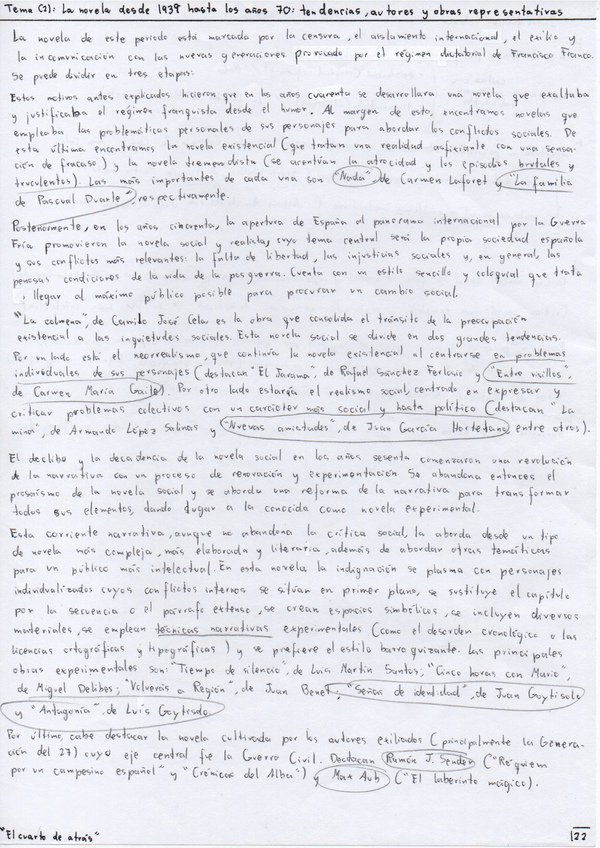 Tema (2): La novela desde 1939 hasta los años 70: tendencias, autores y obras representativas
La novela de este periodo está marcada por la censura, el aislamiento internacional, el exilio y
la incomunicación con las nuevas generaciones provocado por el régimen dictatorial de Francisco Franco.
Se puede dividir en tres etapas:
Estos motivos antes explicados hicieron que en los años cuarenta se desarrollara una novela que exaltaba
y justificaba el régimen franquista desde el humor. Al margen de esto, encontramos novelas que
empleaba las problemáticas personales de sus personajes para abordar los conflictos sociales. De
esta última encontramos la novela existencial (que tratan una realidad asfixiante con una sensa-
ción de fracaso) y la novela tremendista (se acentúan la atrocidad y los episodios brutales y
truculentos). Las más importantes de cada una son "Nada" de Carmen Laforet y "La familia
de Pascual Duarte", respectivamente.
Posteriormente, en los años cincuenta, la apertura de España al panorama internacional por la Guerra
Fría promovieron la novela social y realista, cuyo tema central será la propia sociedad española
y sus conflictos más relevantes: la falta de libertad, las injusticias sociales y, en general, las
penosas condiciones de la vida de la posguerra. Cuenta con un estilo sencillo y coloquial que trata
llegar al máximo público posible para procurar un cambio social.
"La colmena", de Camilo José Cela es la obra que consolida el tránsito de la preocupación
existencial a las inquietudes sociales. Esta novela social se divide en dos grandes tendencias.
Por un lado está el neorrealismo, que continúa la novela existencial al centrarse en problemas
individuales de sus personajes (destacan "El Jarama", de Rafael Sánchez Ferlosio y "Entre visillos",
de Carmen María Gaite). Por otro lado estaría el realismo social, centrado en expresar y
criticar problemas colectivos con un carácter más social y hasta político (destacan "La
mina", de Armando López Salinas y "Nuevas amistades", de Juan García Hortelano, entre otros).
El declibe y la decadencia de la novela social en los años sesenta comenzaron una revolución
de la narrativa con un proceso de renovación y experimentación. Se abandona entonces el
prosaísmo de la novela social y se aborda una reforma de la narrativa para transformar
todos sus elementos, dando lugar a la conocida como novela experimental.
Esta corriente narrativa, aunque no abandona la crítica social, la aborda desde un tipo
de novela más compleja, más elaborada y literaria, además de abordar otras temáticas
para un público más intelectual. En esta novela la indignación se plasma con personajes
individualizados cuyos conflictos internos se sitúan en primer plano, se sustituye el capítulo
por la secuencia o el párrafo extenso, se crean espacios simbólicos, se incluyen diversos
materiales, se emplean técnicas narrativas experimentales (como el desorden cronológico o las
licencias ortográficas y tipográficas) y se prefiere el estilo barroquizante. Las principales
obras experimentales son: "Tiempo de silencio", de Luis Martín Santos; "Cinco horas con Mario",
de Miguel Delibes; "Volverás a Región", de Juan Benet; "Señas de identidad", de Juan Goytisolo
y "Antagonía", de Luis Goytisolo.
Por último, cabe destacar la novela cultivada por los autores exiliados (principalmente la Genera-
ción del 27) cuyo eje central fue la Guerra Civil. Destacan Ramón J. Sender ("Réquiem
por un campesino español" y "Crónicas del Alba") y Max Aub ("El laberinto mágico).
"El cuarto de atrás"
22